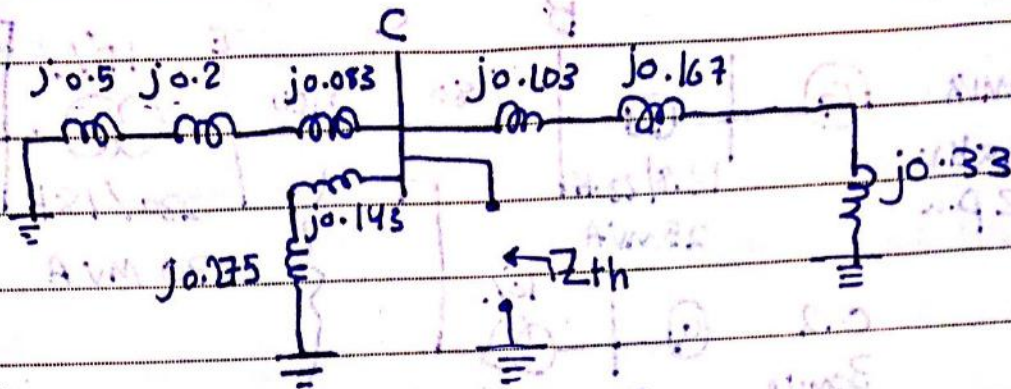 C
j0.5 j0.2 j0.083 j0.103 j0.167
j0.143 j0.33
j0.275 Zth